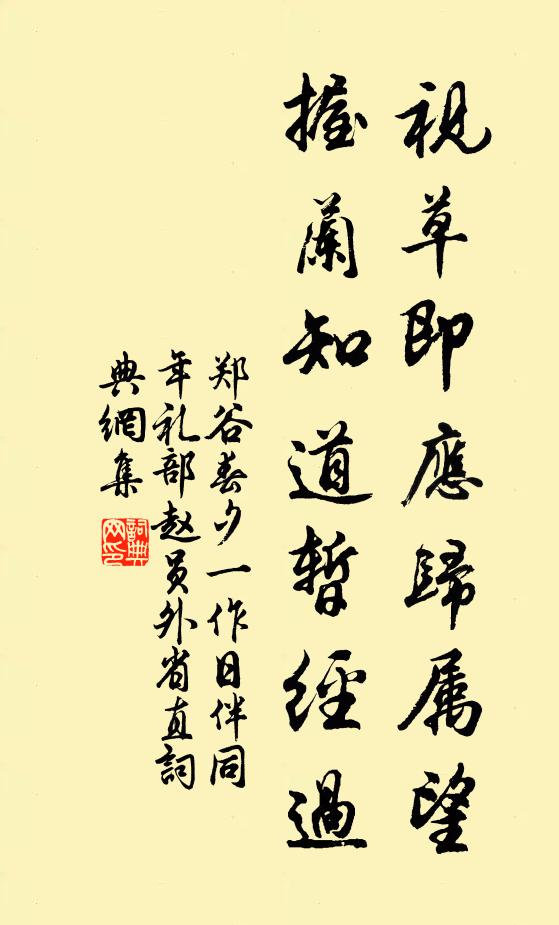 視草即應歸属望
握蘭知道暫經過
郑谷春夕一作日伴同
年礼部赵员外省直詞
典網集
詞典
网印